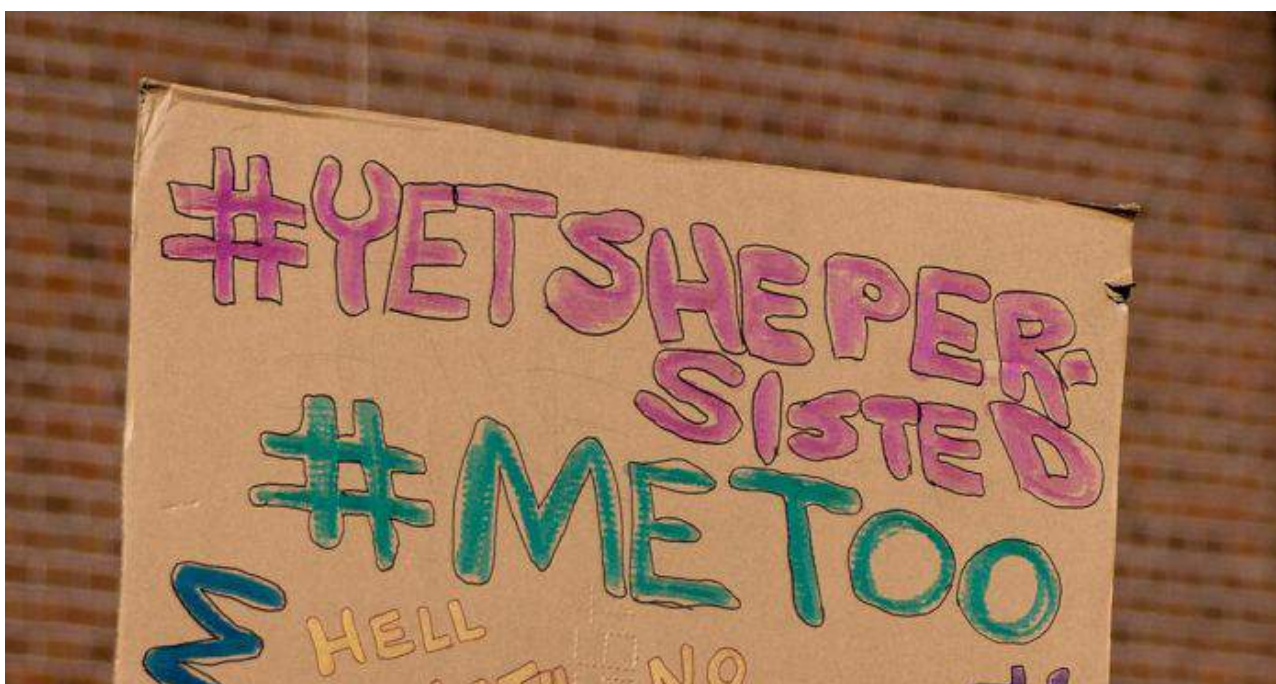 #YETSHEPER-
SISTED
#METOO
HELL
NO